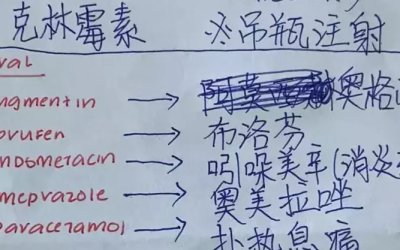 克林霉素 ※吊瓶注射
ngmentin → 奥格
profen → 布洛芬
ndometacin → 吲哚美辛(消炎
meprazole → 奥美拉唑
aracetamol → 扑热息痛